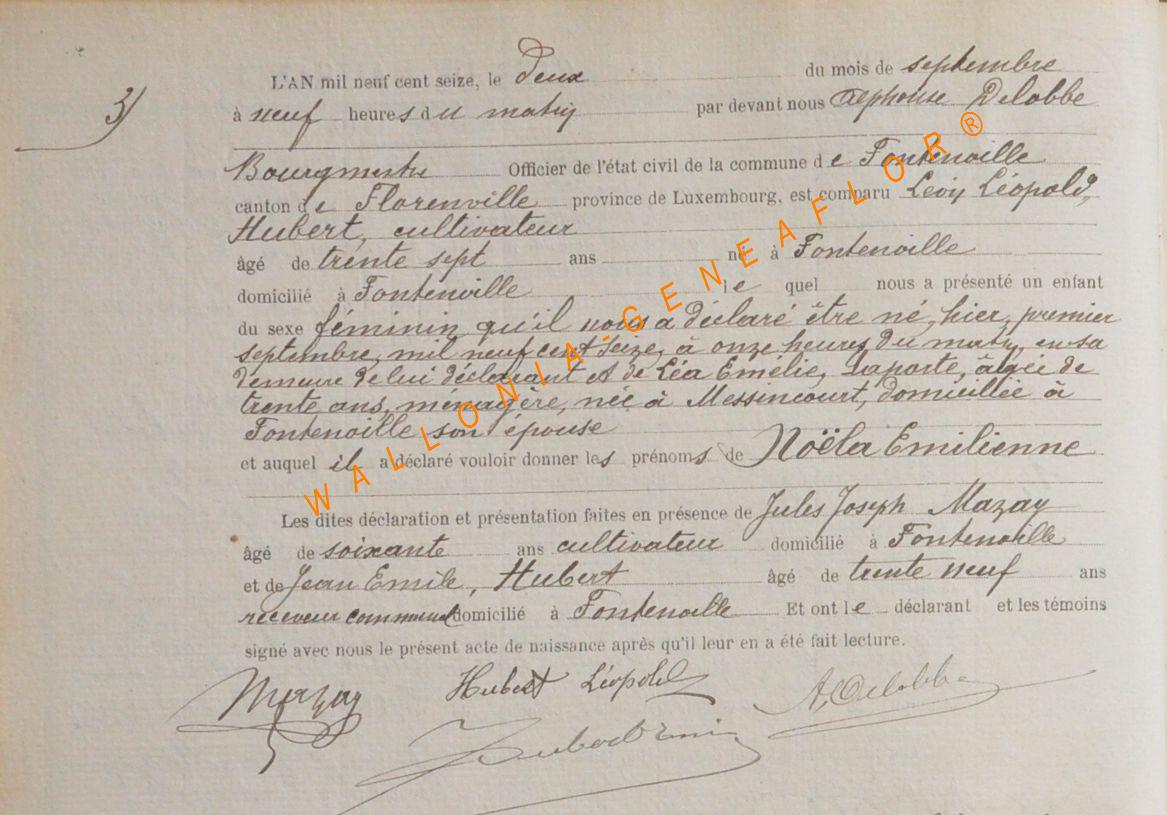 L'AN mil neuf cent seize, le Deux du mois de septembre
3)
à neuf heures du matin par devant nous Alphonse Delobbe
Bourgmestre Officier de l'état civil de la commune de Fontenoille
canton de Florenville province de Luxembourg, est comparu Léon Léopold,
Hubert, cultivateur
âgé de trente sept ans né à Fontenoille
domicilié à Fontenoille le quel nous a présenté un enfant
du sexe féminin qu'il nous a déclaré être né, hier, premier
septembre, mil neuf cent seize, à onze heures du matin, en sa
demeure de lui déclarant et de Léa Emélie, Laporte, âgée de
trente ans, ménagère, née à Messincourt, domiciliée à
Fontenoille son épouse
et auquel il a déclaré vouloir donner les prénoms de Noëla Emilienne
Les dites déclaration et présentation faites en présence de Jules Joseph Mazay
âgé de soixante ans cultivateur domicilié à Fontenoille
et de Jean Emile, Hubert âgé de trente neuf ans
receveur communal domicilié à Fontenoille Et ont le déclarant et les témoins
signé avec nous le présent acte de naissance après qu'il leur en a été fait lecture.
Mazay Hubert Léopold A. Delobbe
Hubert Emile
WALLONIA-GENEAFLOR®